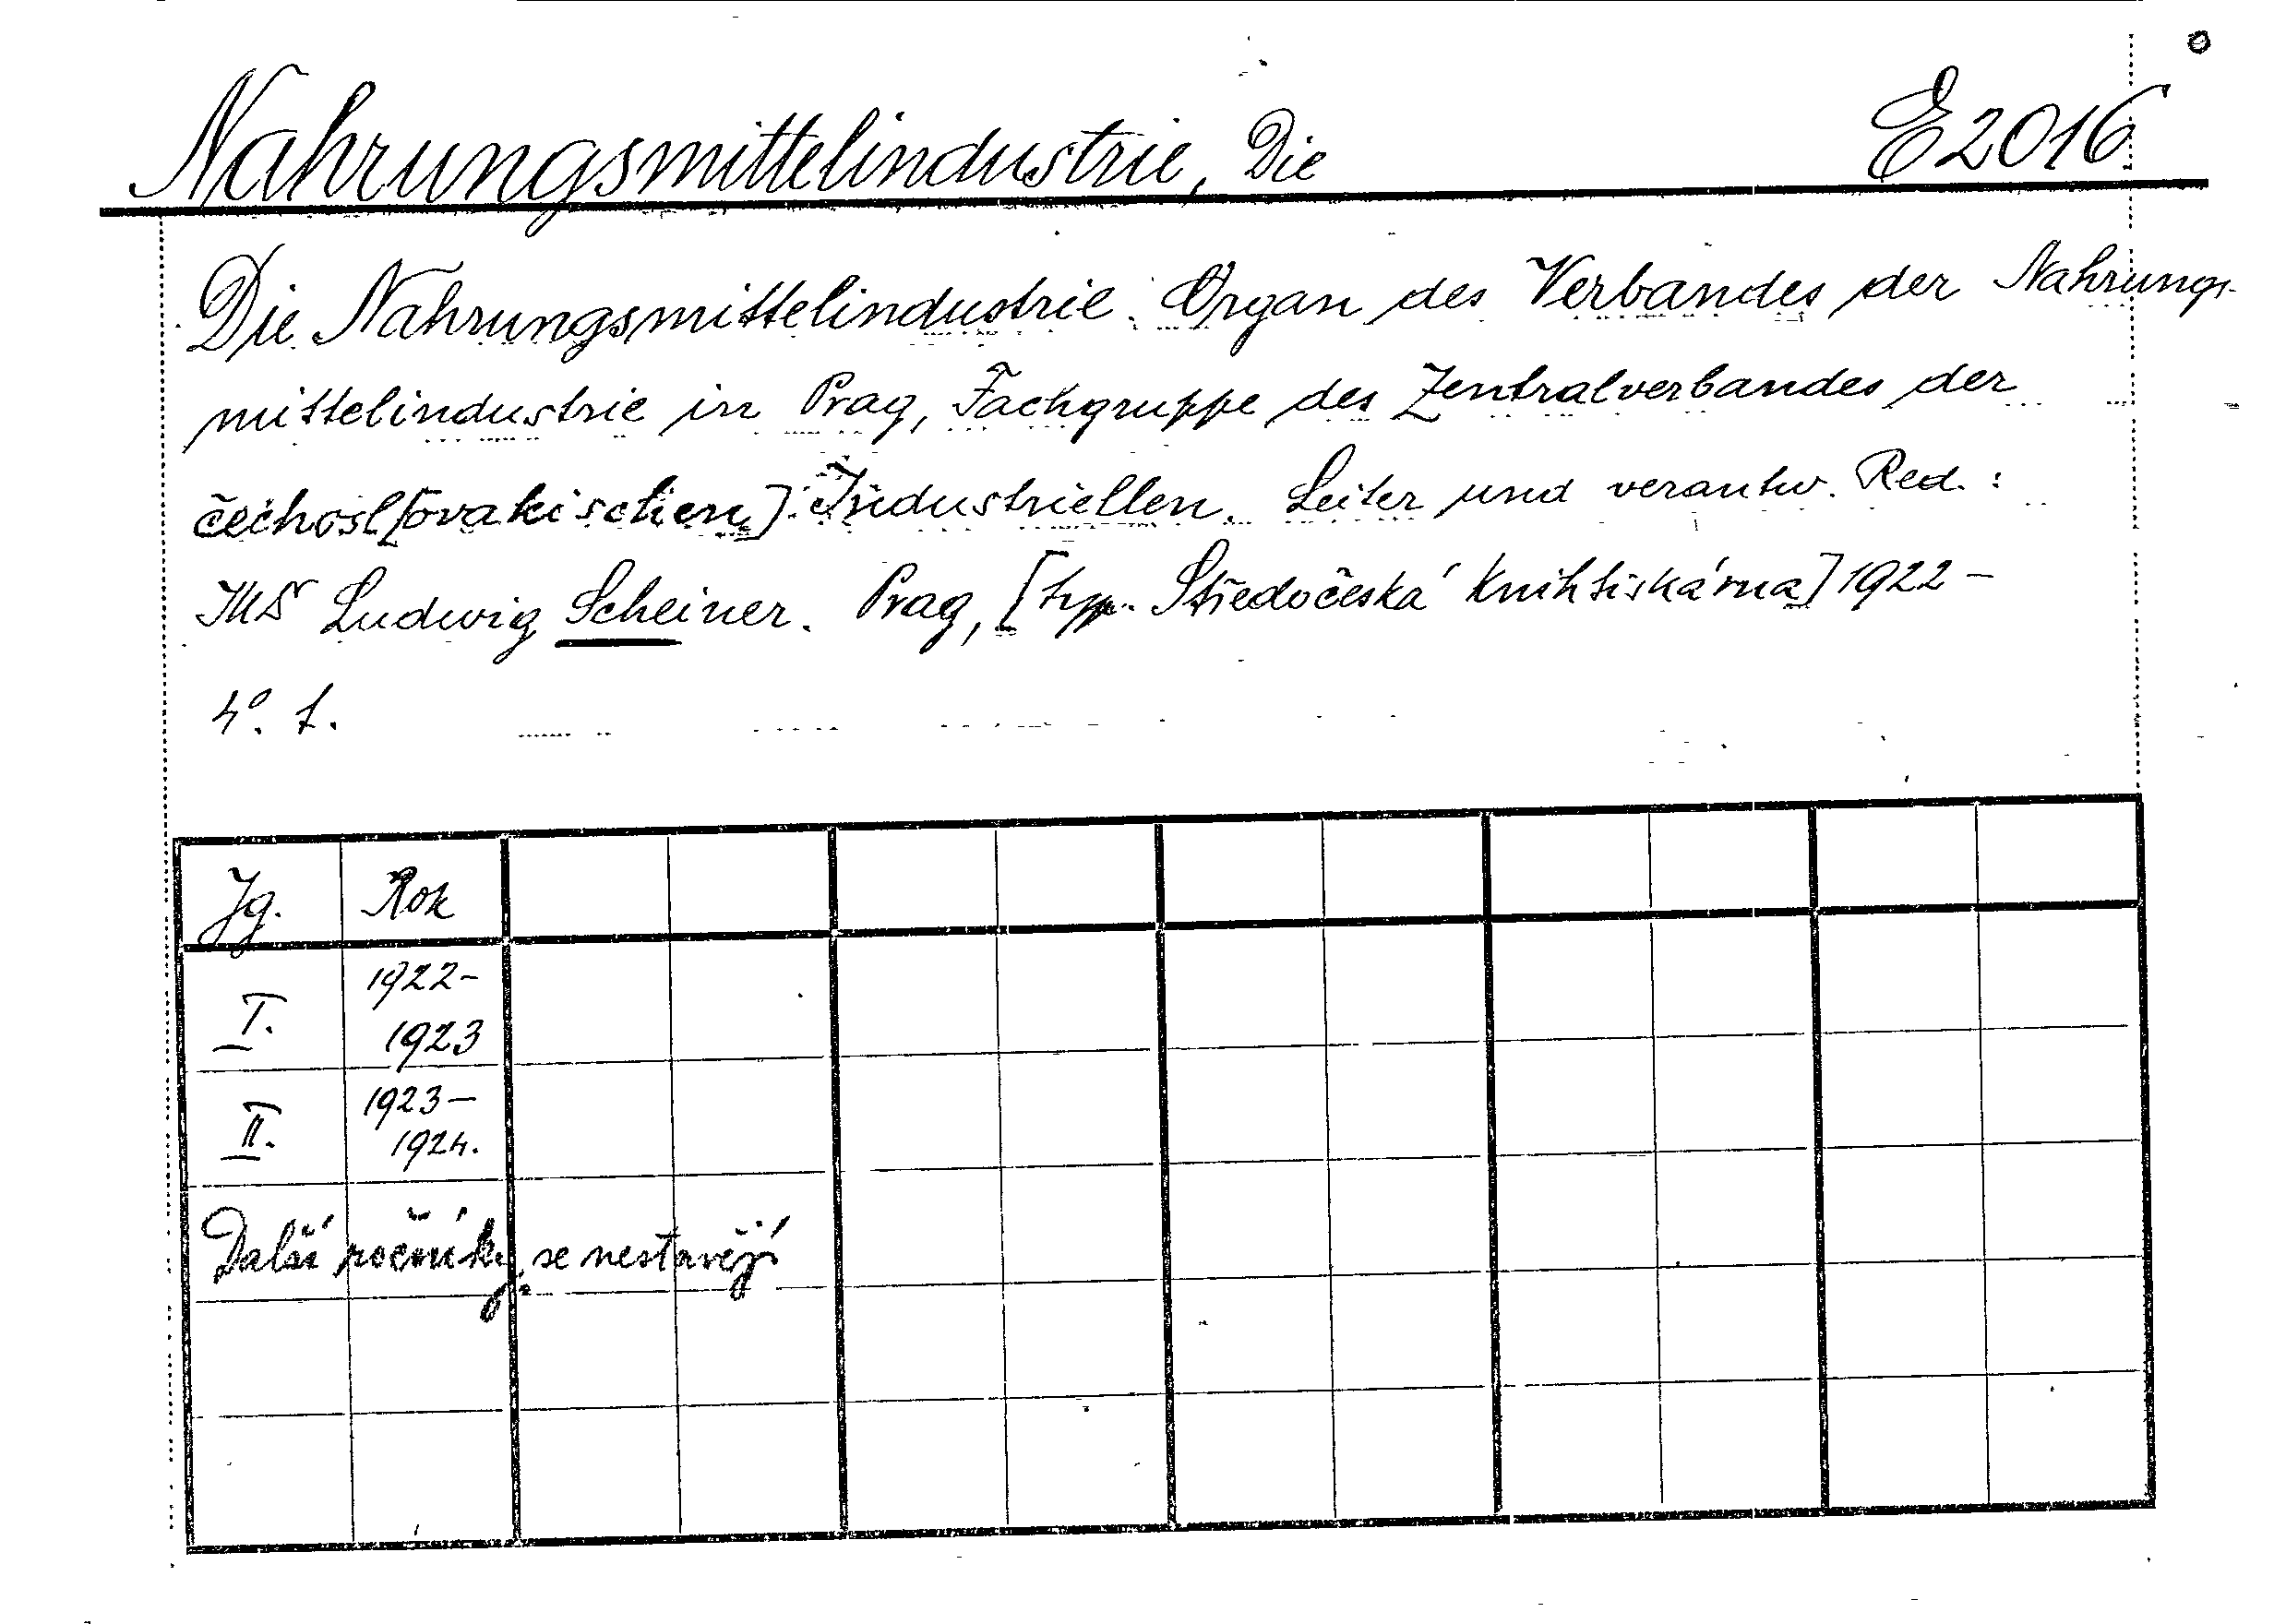 Nahrungsmittelindustrie, Die E 2016
Die Nahrungsmittelindustrie. Organ des Verbandes der Nahrungs-
mittelindustrie in Prag, Fachgruppe des Zentralverbandes der
čechosl[ovakischen] Industriellen. Leiter und verantw. Red.:
Ludwig Scheiner. Prag, [typ. Středočeská knihtiskárna] 1922 –
4°. f.
Jg. Rok
I. 1922–
1923
II. 1923–
1924.
Další ročníky se nestavějí